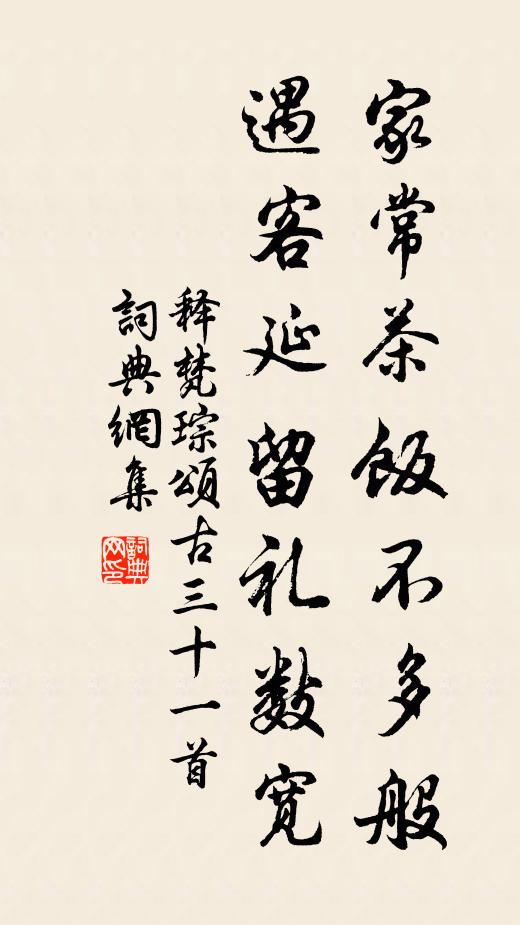 家常茶飯不多般
遇客延留礼数宽
释梵琮頌古三十一首
詞典網集
詞典网印